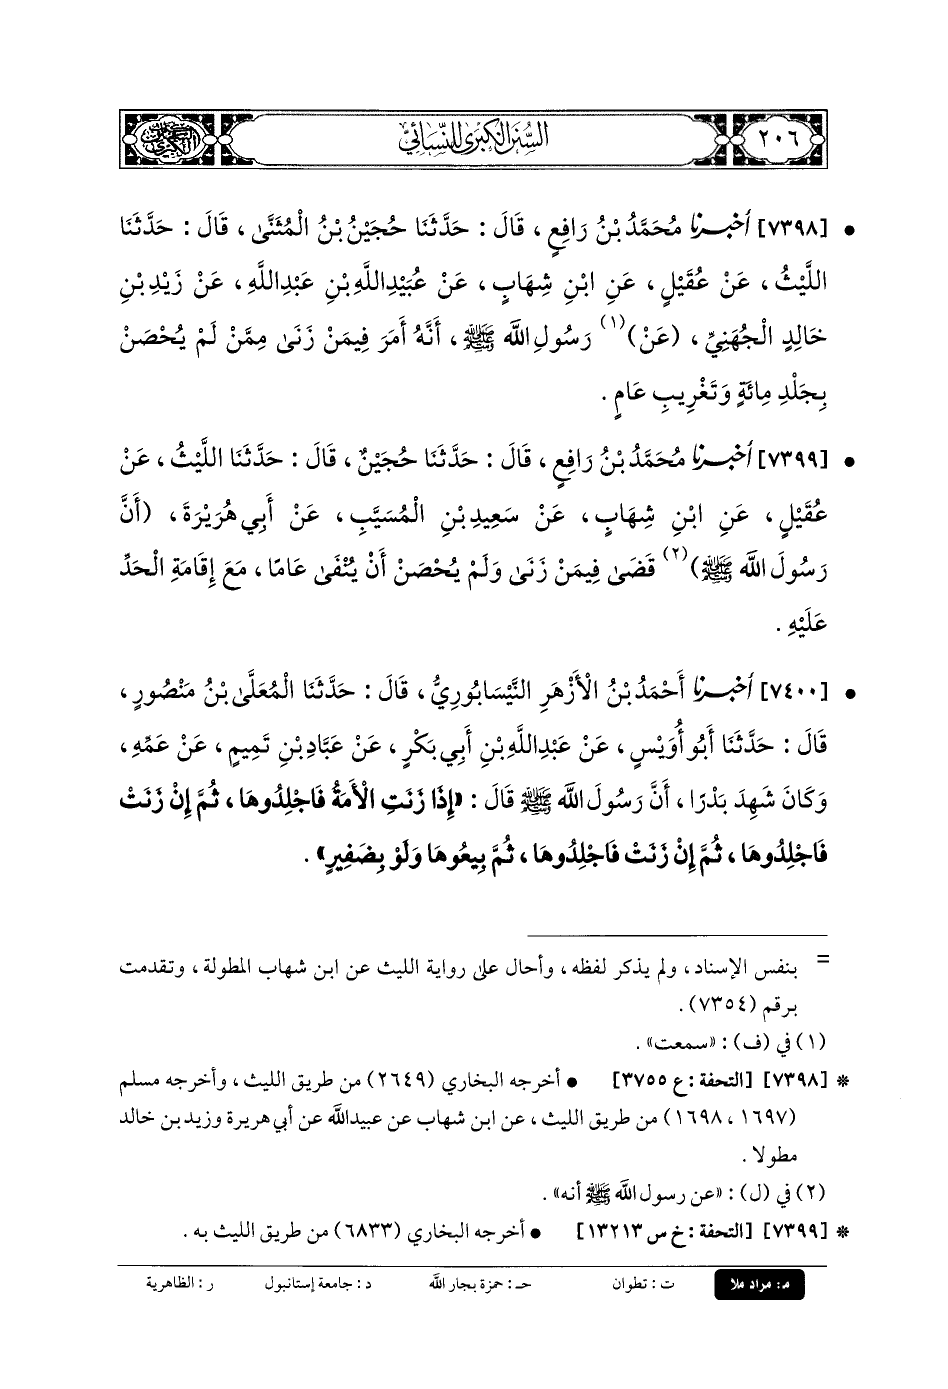 ٢٠٦
السُّنَنُ الكُبْرَى لِلنَّسَائِيِّ
• [٧٣٩٨] أَخْبَرَنَا مُحَمَّدُ بْنُ رَافِعٍ ، قَالَ : حَدَّثَنَا حُجَيْنُ بْنُ الْمُثَنَّى ، قَالَ : حَدَّثَنَا
اللَّيْثُ ، عَنْ عُقَيْلٍ ، عَنِ ابْنِ شِهَابٍ ، عَنْ عُبَيْدِاللَّهِ بْنِ عَبْدِاللَّهِ ، عَنْ زَيْدِ بْنِ
خَالِدٍ الْجُهَنِيِّ ، (عَنْ)(١) رَسُولِ اللَّه ﷺ ، أَنَّهُ أَمَرَ فِيمَنْ زَنَى مِمَّنْ لَمْ يُحْصَنْ
بِجَلْدِ مِائَةٍ وَتَغْرِيبِ عَامٍ .
• [٧٣٩٩] أَخْبَرَنَا مُحَمَّدُ بْنُ رَافِعٍ ، قَالَ : حَدَّثَنَا حُجَيْنٌ ، قَالَ : حَدَّثَنَا اللَّيْثُ ، عَنْ
عُقَيْلٍ ، عَنِ ابْنِ شِهَابٍ ، عَنْ سَعِيدِ بْنِ الْمُسَيَّبِ ، عَنْ أَبِي هُرَيْرَةَ ، (أَنَّ
رَسُولَ اللَّه ﷺ)(٢) قَضَى فِيمَنْ زَنَى وَلَمْ يُحْصَنْ أَنْ يُنْفَى عَامًا ، مَعَ إِقَامَةِ الْحَدِّ
عَلَيْهِ .
• [٧٤٠٠] أَخْبَرَنَا أَحْمَدُ بْنُ الْأَزْهَرِ النَّيْسَابُورِيُّ ، قَالَ : حَدَّثَنَا الْمُعَلَّى بْنُ مَنْصُورٍ ،
قَالَ : حَدَّثَنَا أَبُو أُوَيْسٍ ، عَنْ عَبْدِاللَّهِ بْنِ أَبِي بَكْرٍ ، عَنْ عَبَّادِ بْنِ تَمِيمٍ ، عَنْ عَمِّهِ ،
وَكَانَ شَهِدَ بَدْرًا ، أَنَّ رَسُولَ اللَّه ﷺ قَالَ : «إِذَا زَنَتِ الْأَمَةُ فَاجْلِدُوهَا ، ثُمَّ إِنْ زَنَتْ
فَاجْلِدُوهَا ، ثُمَّ إِنْ زَنَتْ فَاجْلِدُوهَا ، ثُمَّ بِيعُوهَا وَلَوْ بِضَفِيرٍ» .
= بنفس الإسناد ، ولم يذكر لفظه ، وأحال على رواية الليث عن ابن شهاب المطولة ، وتقدمت
برقم (٧٣٥٤) .
(١) في (ف) : «سمعت» .
* [٧٣٩٨] [التحفة : ع ٣٧٥٥] • أخرجه البخاري (٢٦٤٩) من طريق الليث ، وأخرجه مسلم
(١٦٩٧ ، ١٦٩٨) من طريق الليث ، عن ابن شهاب عن عبيدالله عن أبي هريرة وزيد بن خالد
مطولا .
(٢) في (ل) : «عن رسول الله ﷺ أنه» .
* [٧٣٩٩] [التحفة : خ س ١٣٢١٣] • أخرجه البخاري (٦٨٣٣) من طريق الليث به .
م: مراد ملا ت : تطوان حـ : حمزة بجار الله د : جامعة إستانبول ر : الظاهرية